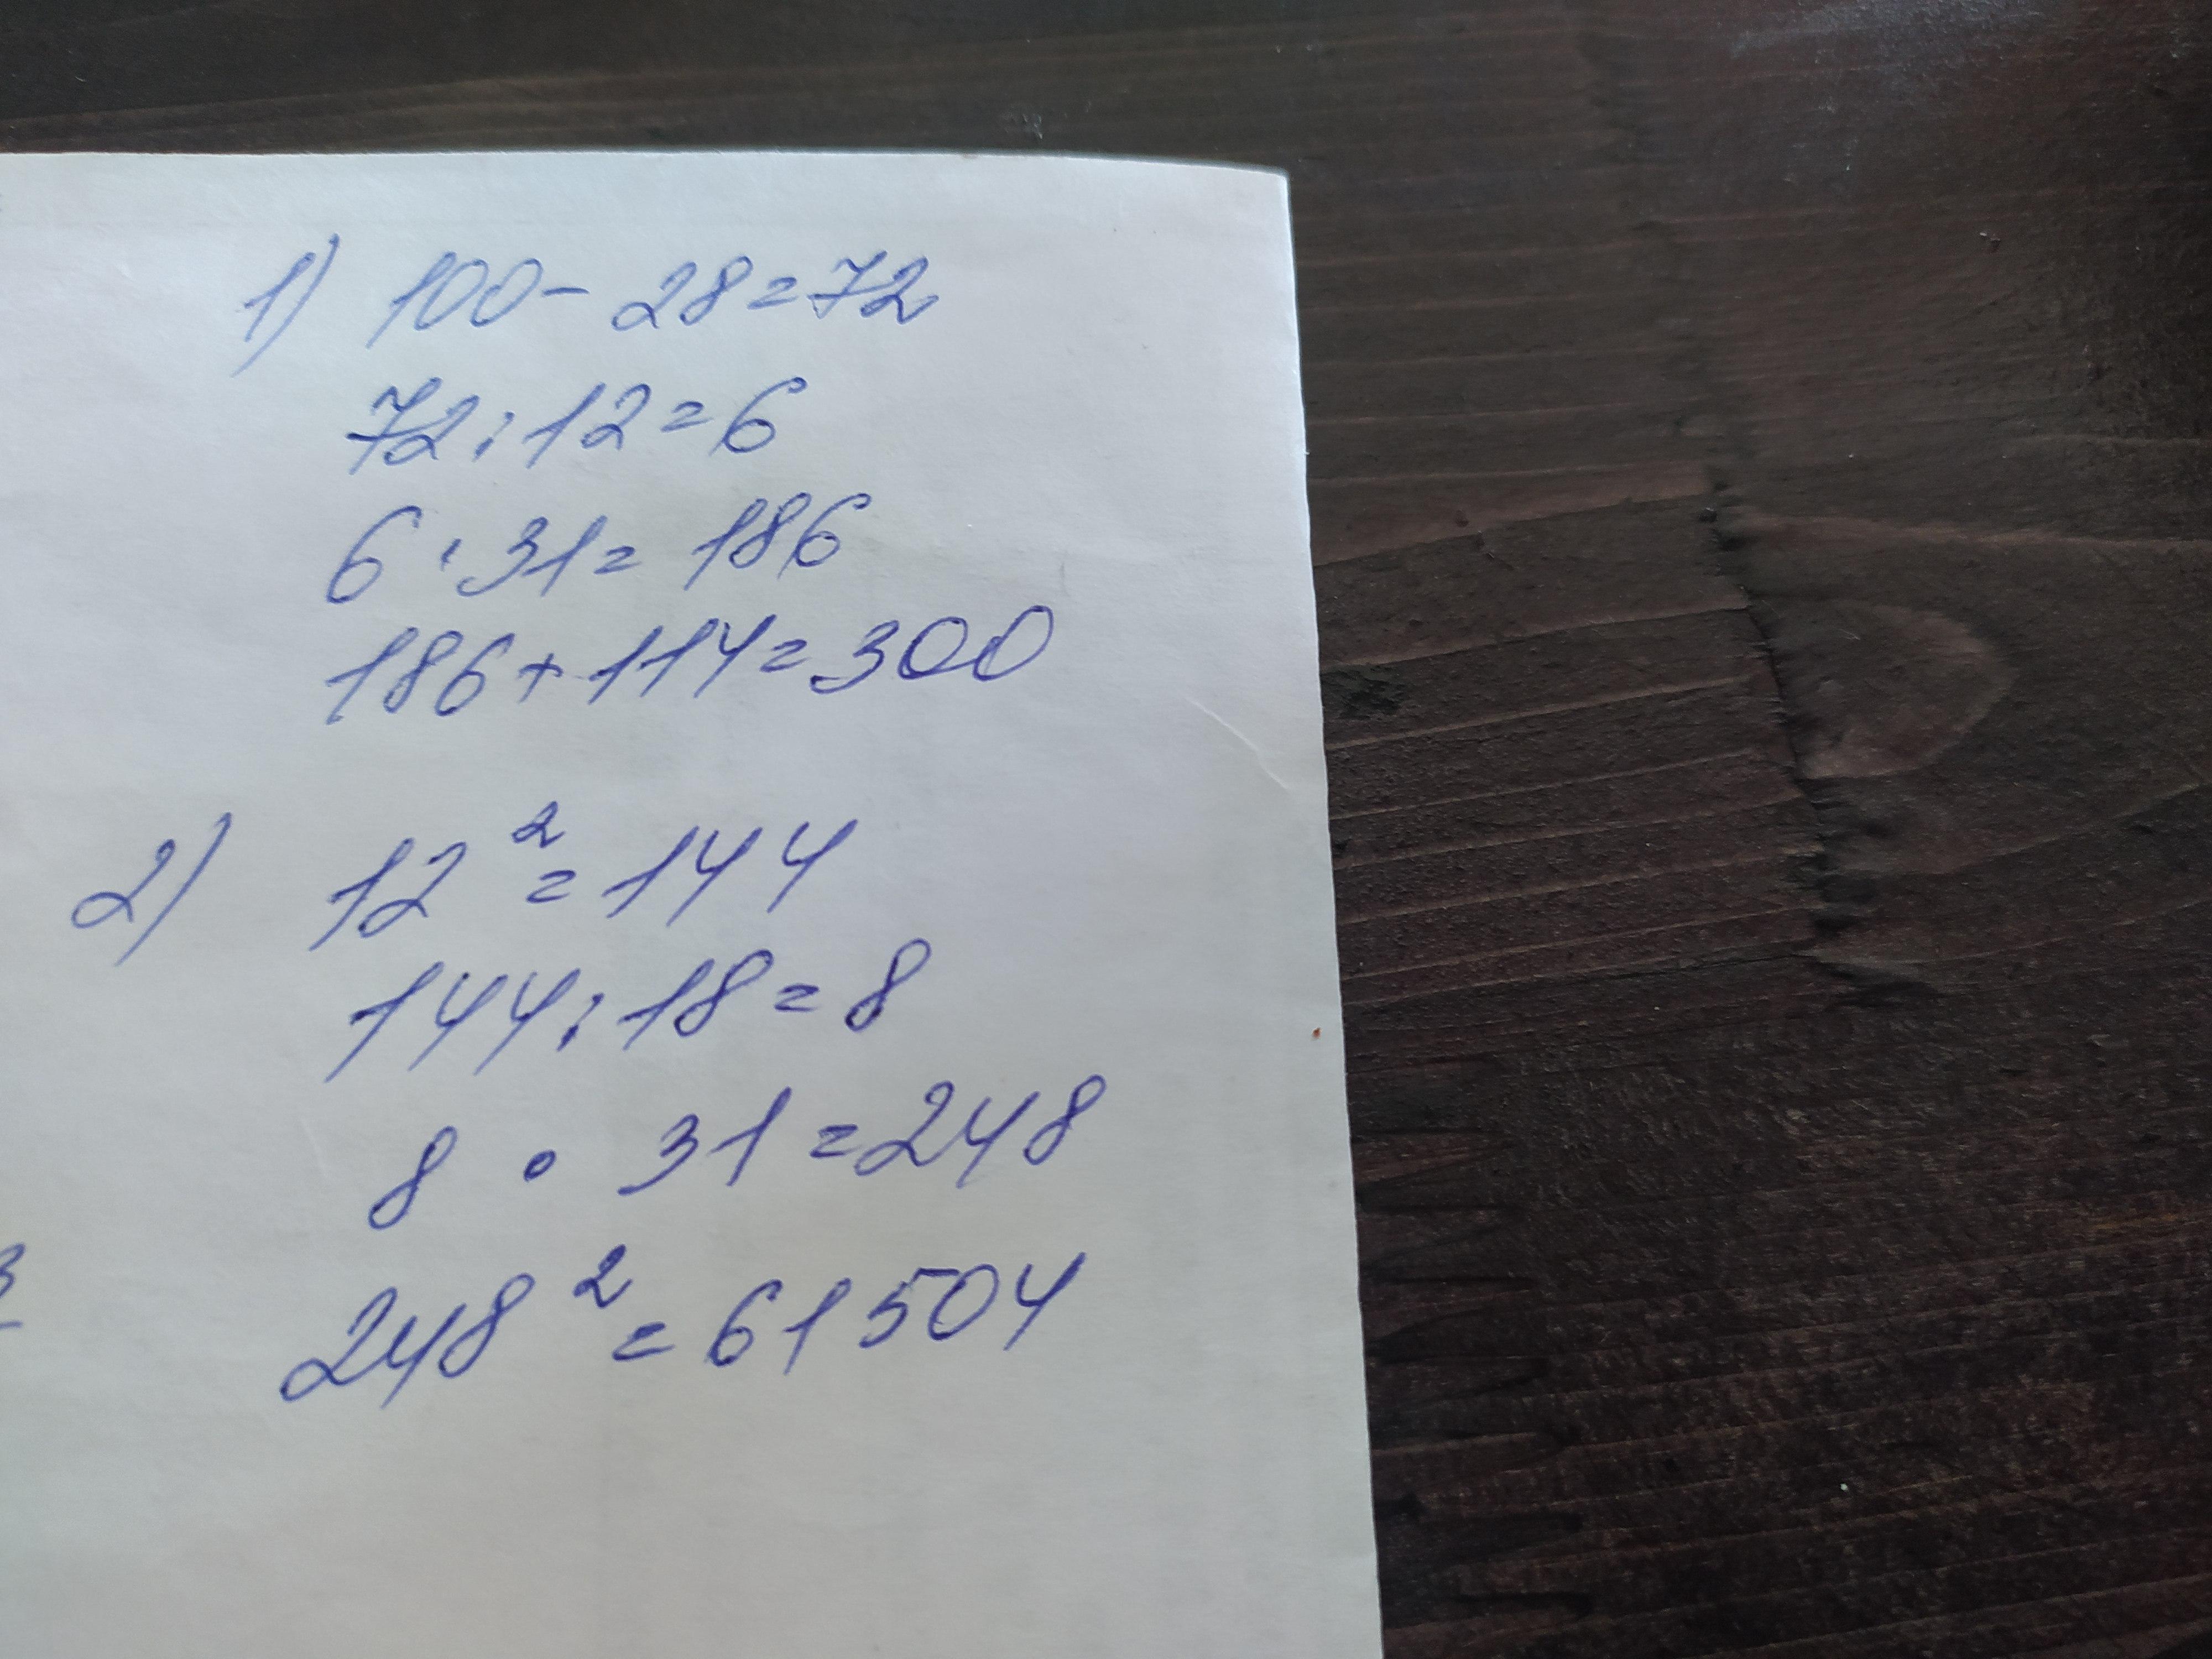 1) 100 - 28 = 72
72 : 12 = 6
6 · 31 = 186
186 + 114 = 300
2) 12² = 144
144 : 18 = 8
8 · 31 = 248
3
248² = 61504